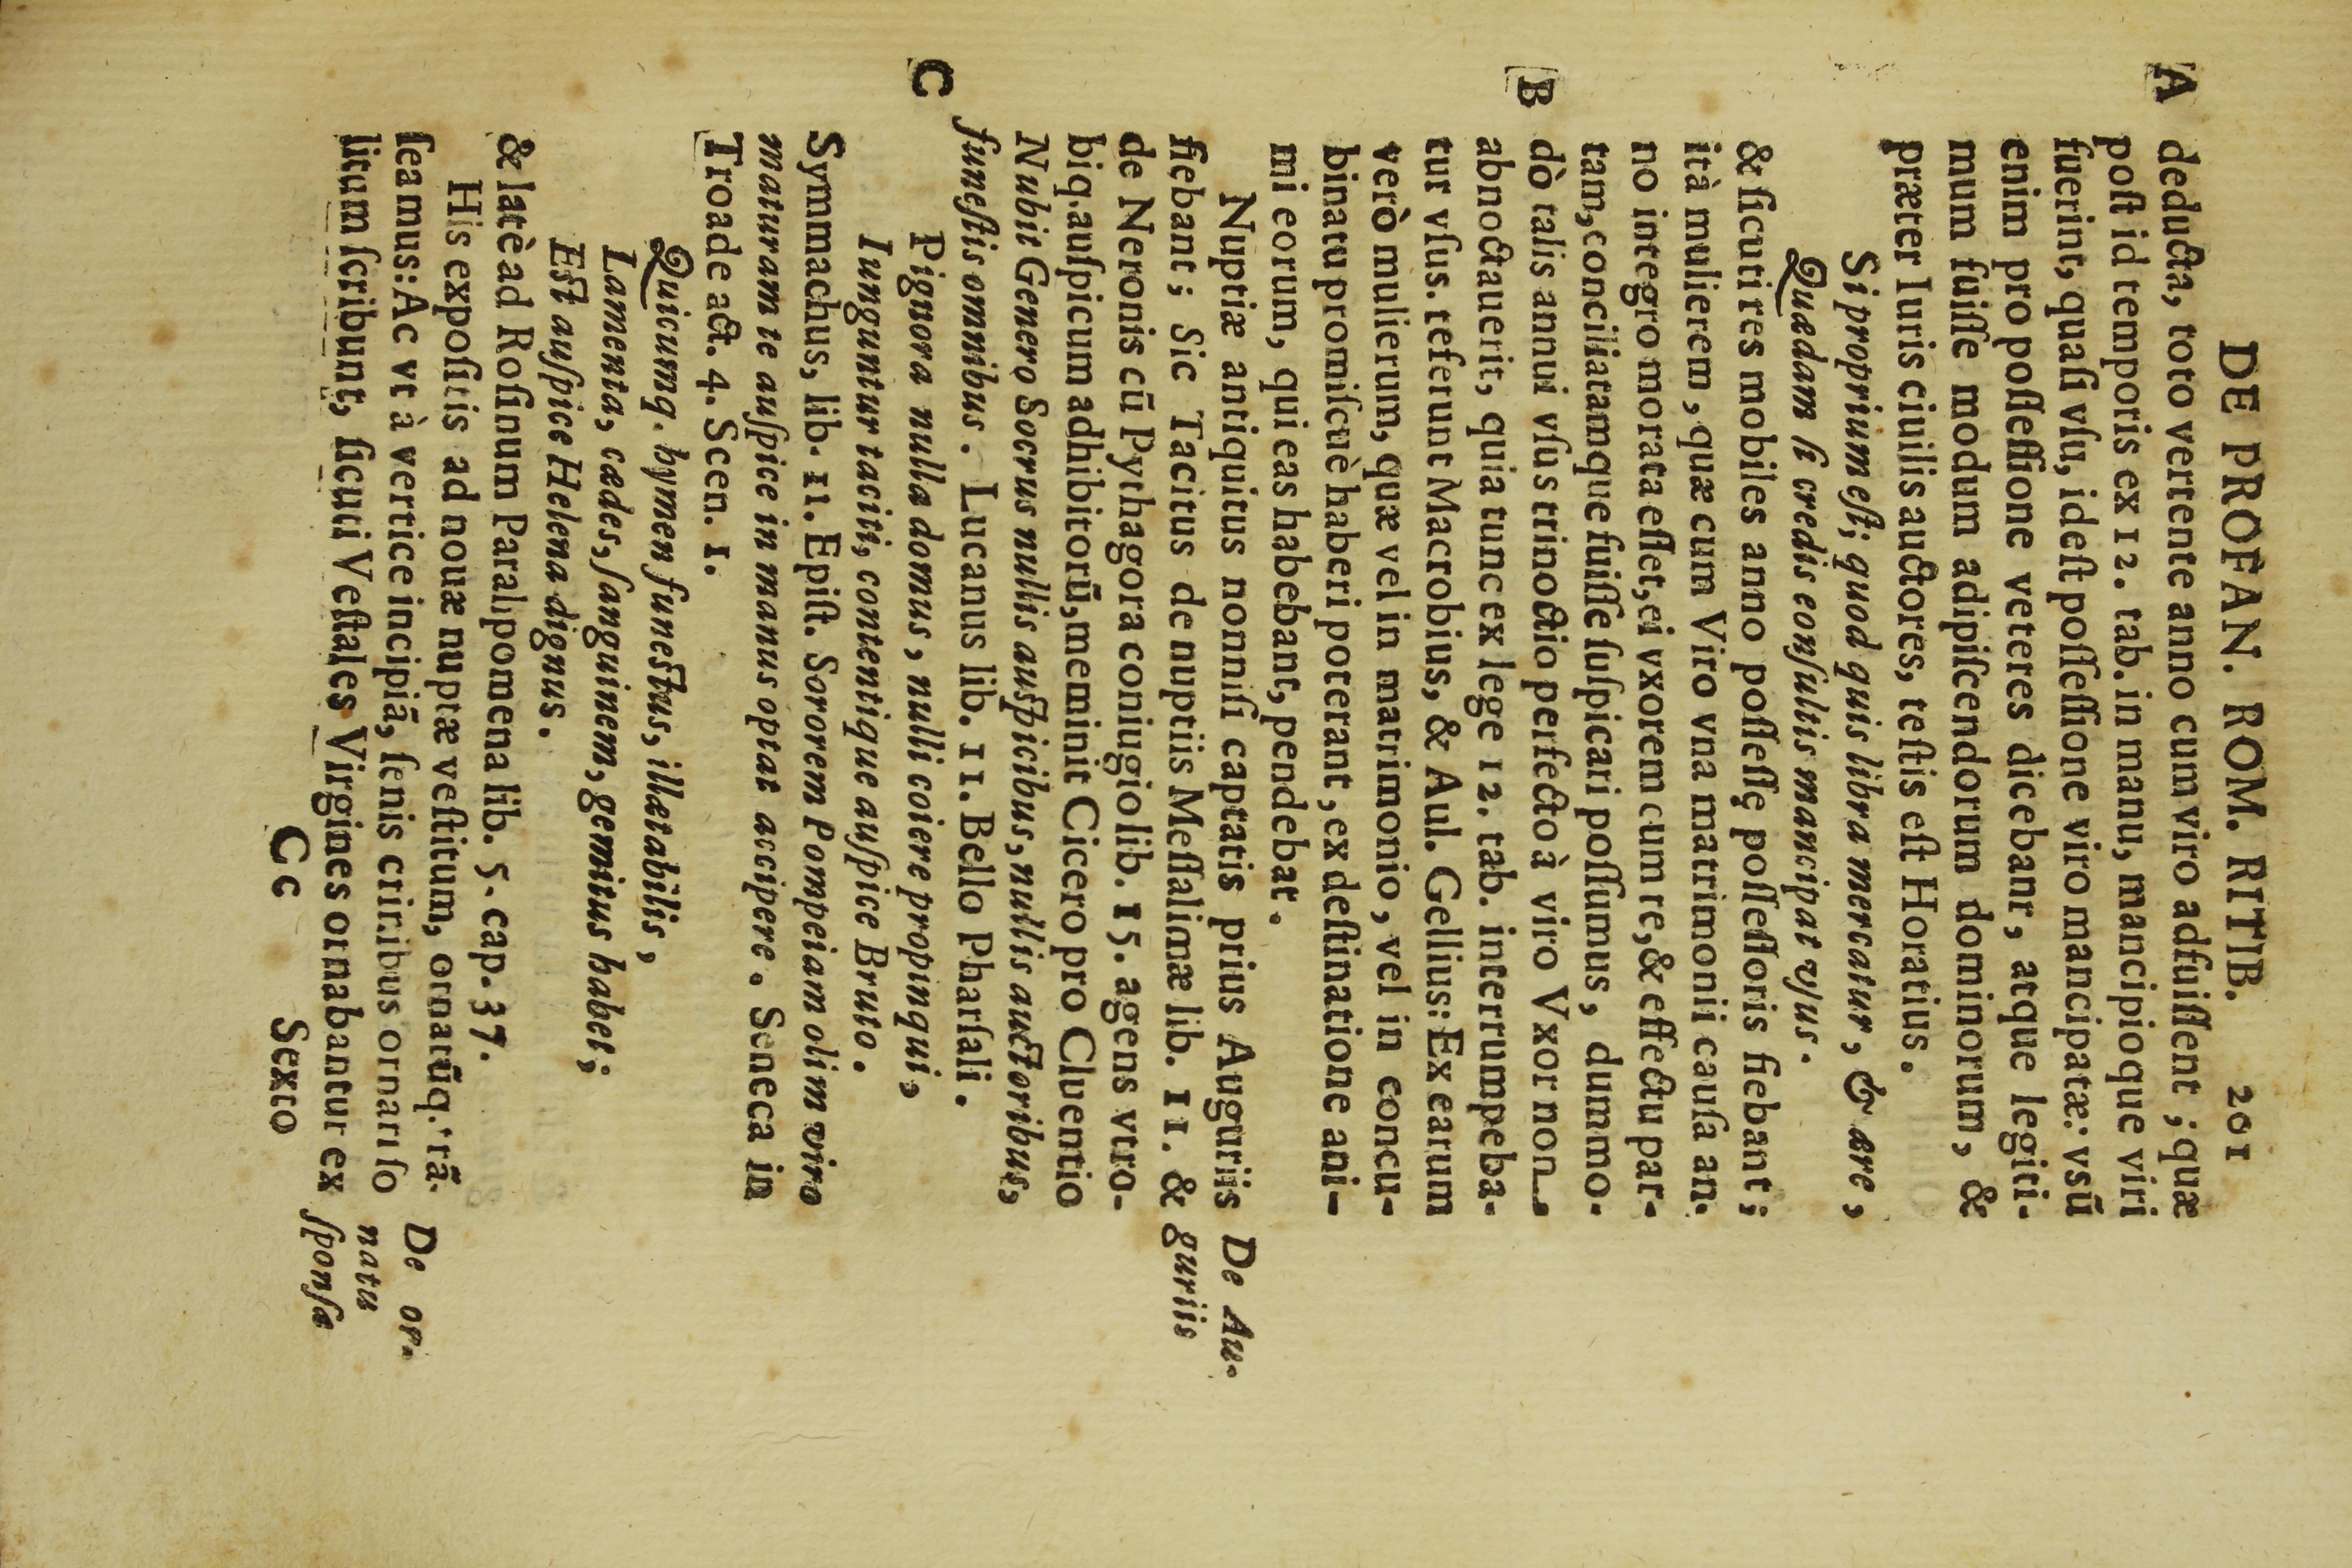 DE PROFAN. ROM. RITIB. 201
A deducta, toto vertente anno cum viro adfuiſſent ; quæ
poſt id temporis ex 12. tab. in manu, mancipioque viri
fuerint, quaſi vſu, ideſt poſſeſſione viro mancipatæ: vsū
enim pro poſſeſſione veteres dicebant, atque legiti-
mum fuiſſe modum adipiſcendorum dominorum, &
præter Iuris ciuilis auctores, teſtis eſt Horatius.
Si proprium eſt; quod quis libra mercatur, & ære,
Quædam ſi credis conſultis mancipat vſus.
& ſicuti res mobiles anno poſſeſſę poſſeſſoris fiebant ;
ità mulierem, quæ cum Viro vna matrimonii cauſa an-
no integro morata eſſet, ei vxorem cum re, & effectu par-
tam, conciliatamque fuiſſe ſuſpicari poſſumus, dummo-
B dò talis annui vſus trinoctio perfecto à viro Vxor non
abnoctauerit, quia tunc ex lege 12. tab. interrumpeba-
tur vſus. referunt Macrobius, & Aul. Gellius: Ex earum
verò mulierum, quæ vel in matrimonio, vel in concu-
binatu promiſcuè haberi poterant, ex deſtinatione ani-
mi eorum, qui eas habebant, pendebat.
Nuptiæ antiquitus nonniſi captatis prius Auguriis De Au-
fiebant; Sic Tacitus de nuptiis Meſſalinæ lib. 11. & guriis
de Neronis cū Pythagora coniugio lib. 15. agens vtro-
biq. auſpicum adhibitorū, meminit Cicero pro Cluentio
Nubit Genero Socrus nullis auſpicibus, nullis auctoribus,
funeſtis omnibus. Lucanus lib. 11. Bello Pharſali.
C Pignora nulla domus, nulli coiere propinqui,
Iunguntur taciti, contentique auſpice Bruto.
Symmachus, lib. 11. Epiſt. Sororem Pompeiam olim viro
maturam te auſpice in manus optat accipere. Seneca in
Troade act. 4. Scen. 1.
Quicumq. hymen funeſtus, illætabilis,
Lamenta, cædes, ſanguinem, gemitus habet;
Eſt auſpice Helena dignus.
& latè ad Roſinum Paralipomena lib. 5. cap. 37.
His expoſitis ad nouæ nuptæ veſtitum, ornatūq. trā-
ſeamus: Ac vt à vertice incipiā, ſenis crinibus ornari ſo De or-
litum ſcribunt, ſicuti Veſtales Virgines ornabantur ex natu
ſponſæ
Cc Sexto